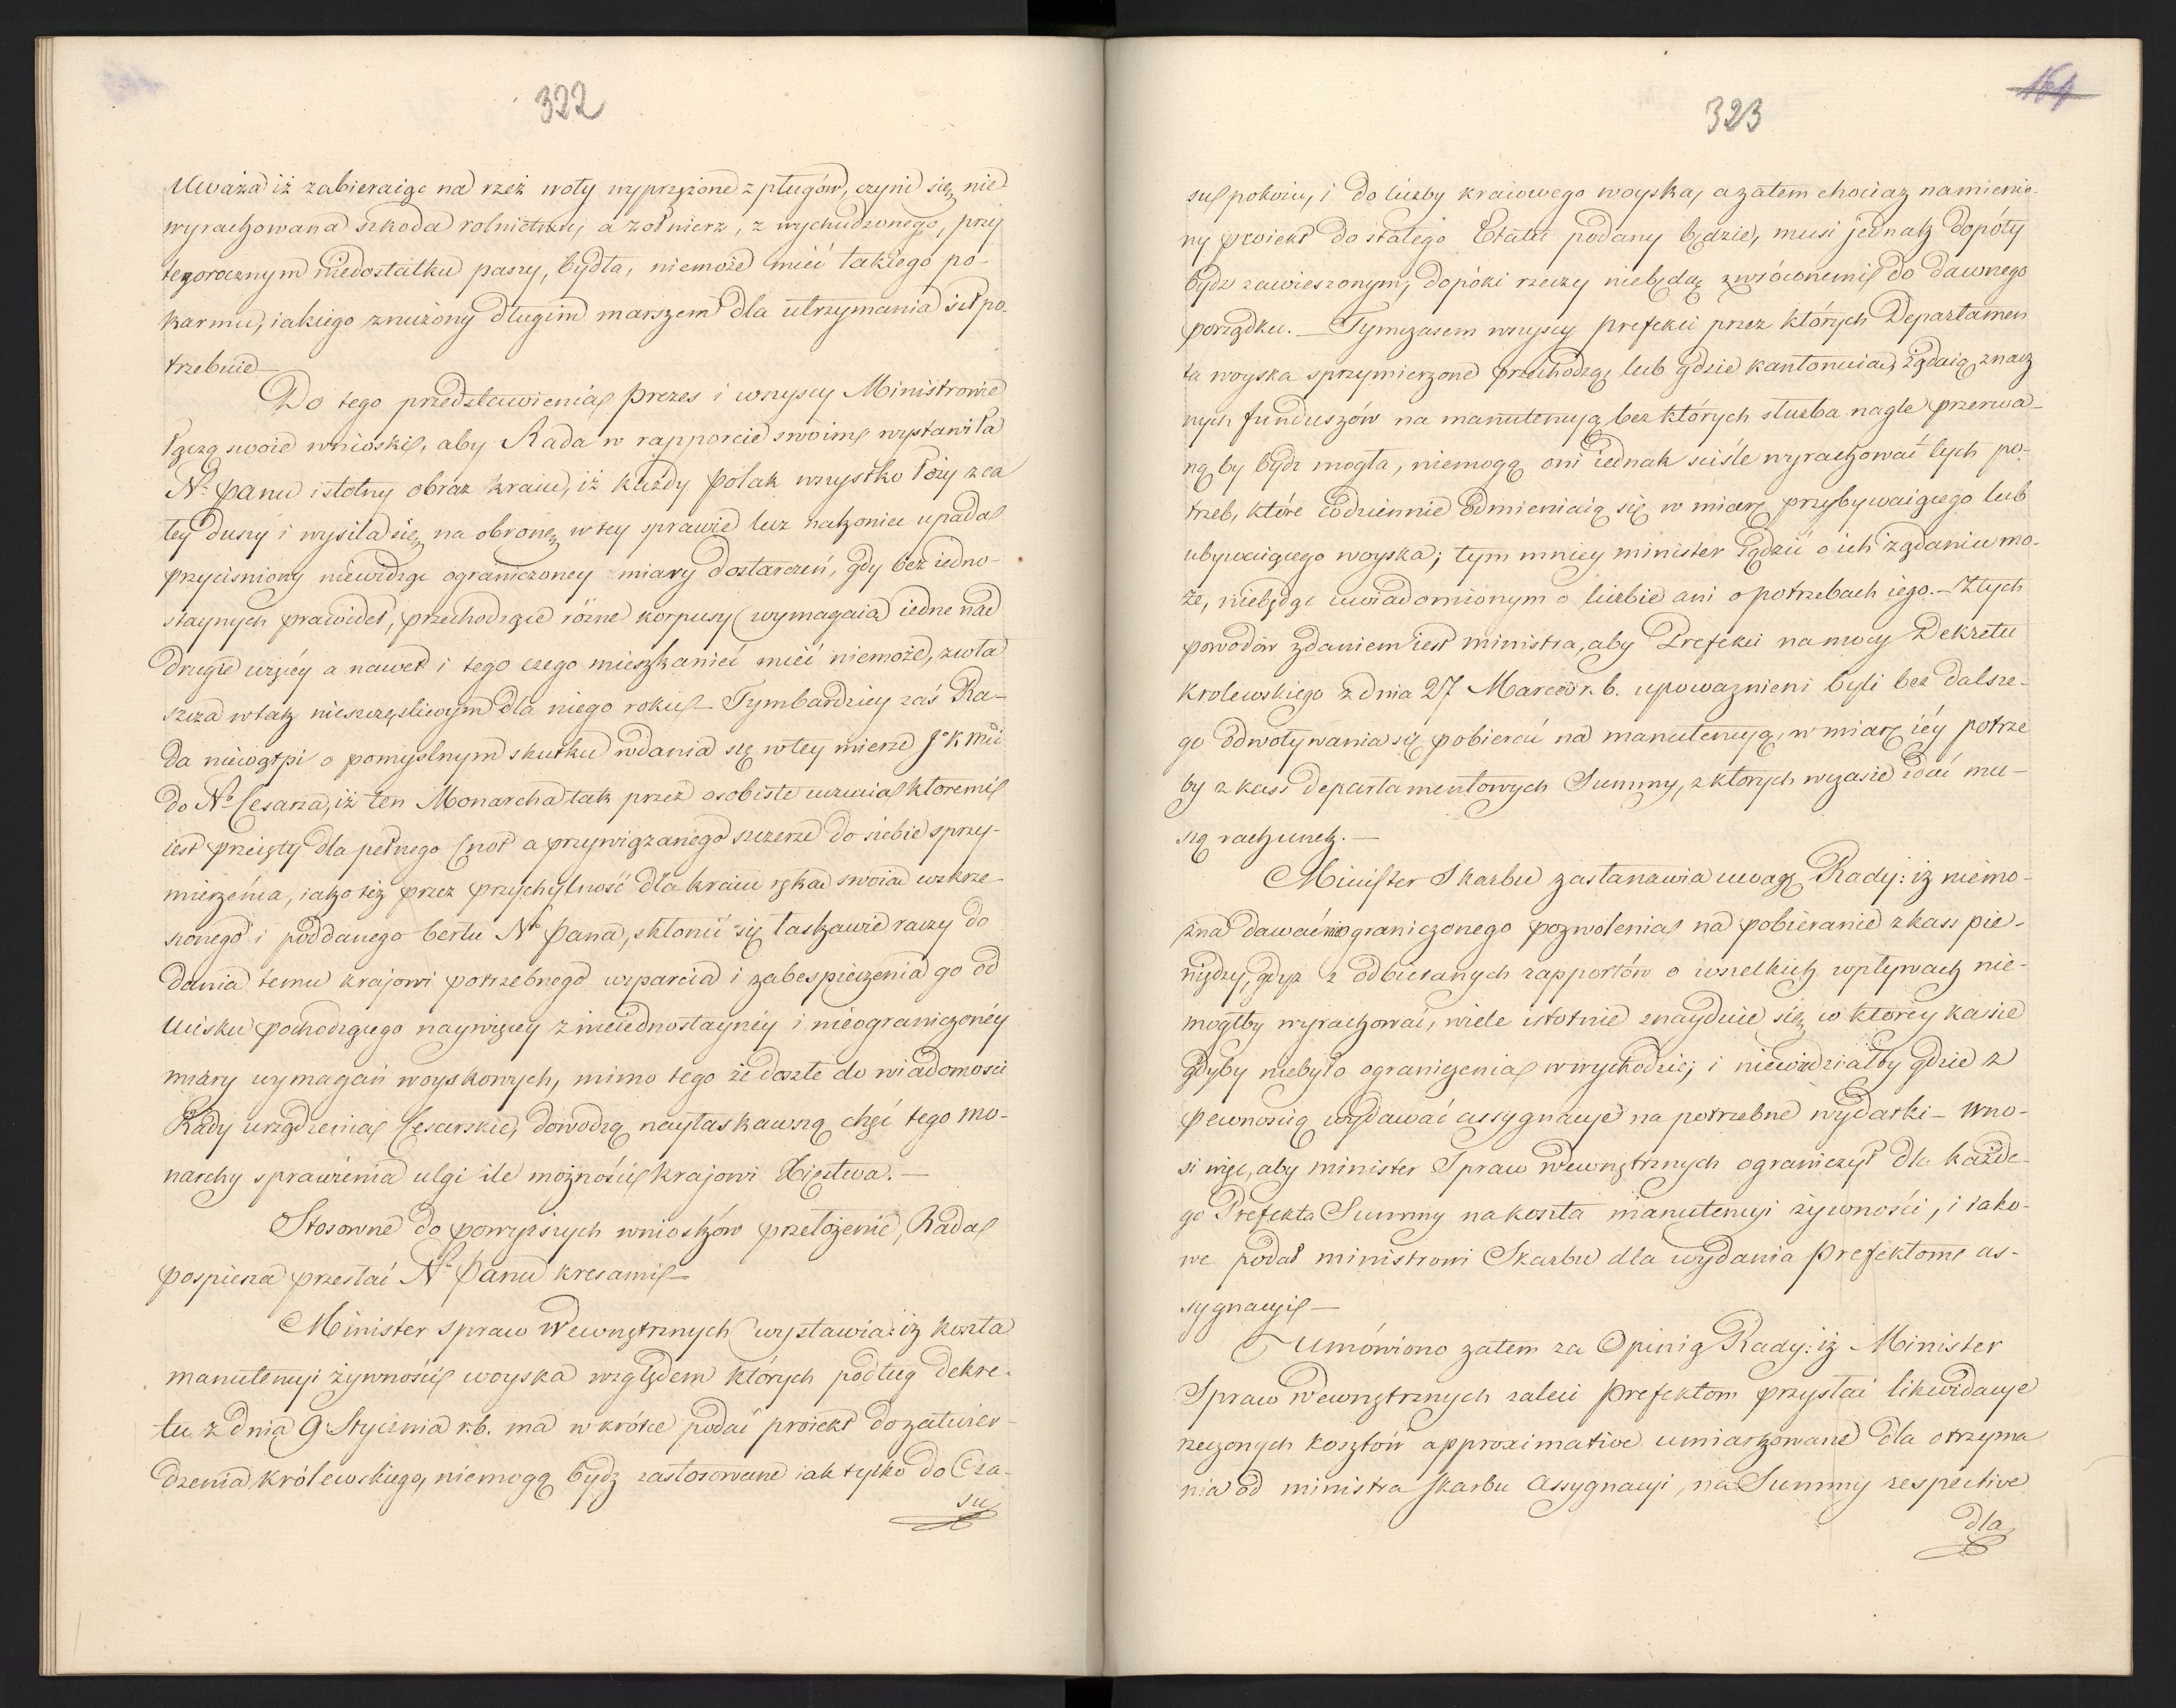 322
Uważa iż zabieraiąc na rzeź woły wyprzężone z pługów, czyni się nie
wyrachowana szkoda rolnictwu, a żołnierz, z wychudzonego, przy
tegorocznym niedostatku paszy, bydła, niemoże mieć takiego po-
karmu, iakiego znużony długim marszem dla utrzymania sił po-
trzebuie
Do tego przedstawienia Prezes i wszyscy Ministrowie
łączą swoie wnioski, aby Rada w rapporcie swoim wystawiła
N. Panu istotny obraz kraiu, iż każdy Polak wszystko łoży z ca
łey duszy i wysila się na obronę w tey sprawie lecz nakoniec upada
przyciśniony niewidząc ograniczoney miary dostarczeń, gdy bez iedno-
staynych prawideł, przechodzące różne korpusy wymagaia iedne nad
drugie więcey a nawet i tego czego mieszkaniec mieć niemoże, zwła
szcza w tak nieszczęśliwym dla niego roku – Tymbardziey zaś Ra-
da niewątpi o pomyslnym skutku wdania się w tey mierze JKMci
do No Cesarza, iż ten Monarcha tak przez osobiste uczucia ktoremi
iest przeięty dla pełnego Cnot a przywiązanego szczerze do siebie sprzy-
mierzeńca, iako też przez przychylność dla kraiu ręka swoia wskrze-
szonego i poddanego berłu No Pana, skłonić się łaskawie raczy do
dania temu krajowi potrzebnego wsparcia i zabespieczenia go od
Ucisku pochodzącego naywięcey z nieiednostayney i nieograniczoney
miary wymagań woyskowych, mimo tego że doszłe do wiadomosci
Rady urządzenia Cesarskie, dowodzą naylaskawszą chęć tego mo-
narchy sprawienia ulgi ile możności krajowi Xięstwa. –
Stosowne do powyższych wniosków przełożenie, Rada
pospiesza przesłać No Panu kresami –
Minister spraw Wewnętrznych wystawia: iż koszta
manutencyi żywności woyska względem których podług dekre-
tu z dnia 9 Stycznia r.b. ma wkrótce podać proiekt do zatwier-
dzenia Królewskiego, niemogą bydz zastosowane iak tylko do Cza-
su
164
323
su pokoiu, i do liczby kraiowego woyska, a zatem chociaz namienio-
ny proiekt do stałego Etatu podany będzie, musi jednak dopóty
bydz zawieszonym, dopóki rzeczy niebędą zwróconemi do dawnego
porządku. – Tymczasem wszyscy prefekci przez których Departamen
ta woyska sprzymierzone przechodzą lub gdzie kantonuia, żądaią znacz
nych funduszów na manutencyą bez których służba nagle przerwa-
ną by bydz mogła, niemogą oni iednak sciśle wyrachować tych po-
trzeb, które codziennie odmieniaią się w miarę przybywaiącego lub
ubywaiącego woyska; tym mniey minister sądzić o ich żądaniu mo-
że, niebędąc uwiadomionym o liczbie ani o potrzebach iego. – Z tych
powodów zdaniem iest ministra, aby Prefekci na mocy Dekretu
Krolewskiego z dnia 27 Marca r.b. upoważnieni byli bez dalsze-
go odwoływania się pobierać na manutencyą, w miarę iéy potrze
by z kass departamentowych Summy, z ktorych wczasie zdać mu-
szą rachunek. –
Minister Skarbu zastanawia uwagę Rady: iz niemo-
żna dawać nieograniczonego pozwolenia na pobieranie z kass pie-
niędzy, gdyz z odbieranych rapportów o wszelkich wpływach nie-
mogłby wyrachować, wiele istotnie znayduie się w ktorey kassie
gdyby niebyło ograniczenia w wychodzie; i niewiedziałby gdzie z
pewnością wydawać assygnacye na potrzebne wydatki – Wno-
si więc, aby minister Spraw Wewnętrznych ograniczył dla każde-
go Prefekta Summy na koszta manutencyi żywności, i tako-
we podał ministrowi Skarbu dla wydania Prefektom as-
sygnacyi –
Umówiono zatem za Opinią Rady: iż Minister
Spraw Wewnętrznych zaleci Prefektom przysłać likwidacye
rzeczonych kosztów approximative umiarkowane dla otrzyma
nia od ministra Skarbu Assygnacyi, na Summy respective
dla